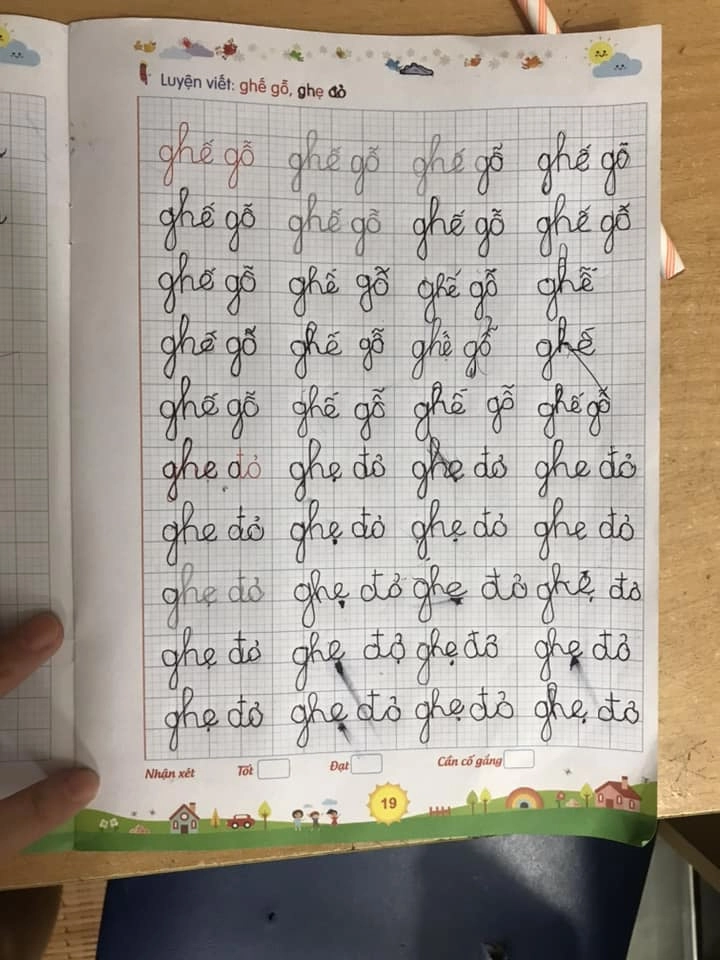 Luyện viết: ghế gỗ, ghẹ đỏ
ghế gỗ ghế gỗ ghế gỗ ghế gỗ
ghế gỗ ghế gỗ ghế gỗ ghế gỗ
ghế gỗ ghế gỗ ghế gỗ ghễ
ghế gỗ ghế gỗ ghế gỗ ghế
ghế gỗ ghế gỗ ghế gỗ ghế gỗ
ghẹ đỏ ghẹ đỏ ghẹ đỏ ghe đỏ
ghe đỏ ghẹ đỏ ghẹ đỏ ghe đỏ
ghẹ đỏ ghẹ đỏ ghẹ đỏ ghẹ đỏ
ghẹ đỏ ghẹ độ ghẹ đỏ ghẹ đỏ
ghẹ đỏ ghẹ đỏ ghẹ đỏ ghẹ đỏ
Nhận xét Tốt Đạt Cần cố gắng
19